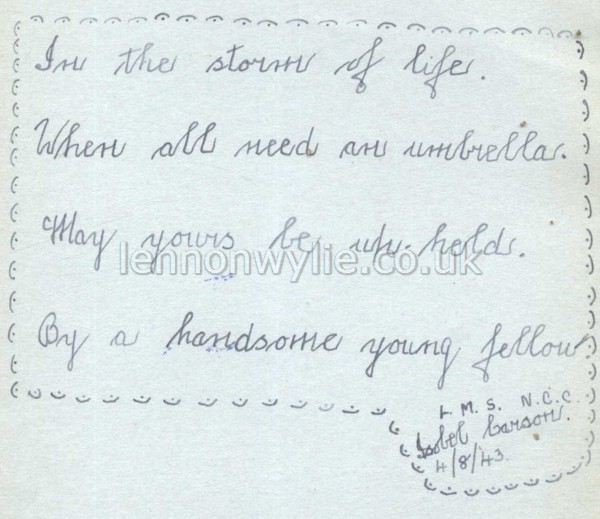 In the storm of life.
When all need an umbrella.
May yours be up-held.
lennonwylie.co.uk
By a handsome young fellow
L. M. S. N.C.C
Isobel Carson.
4/8/43